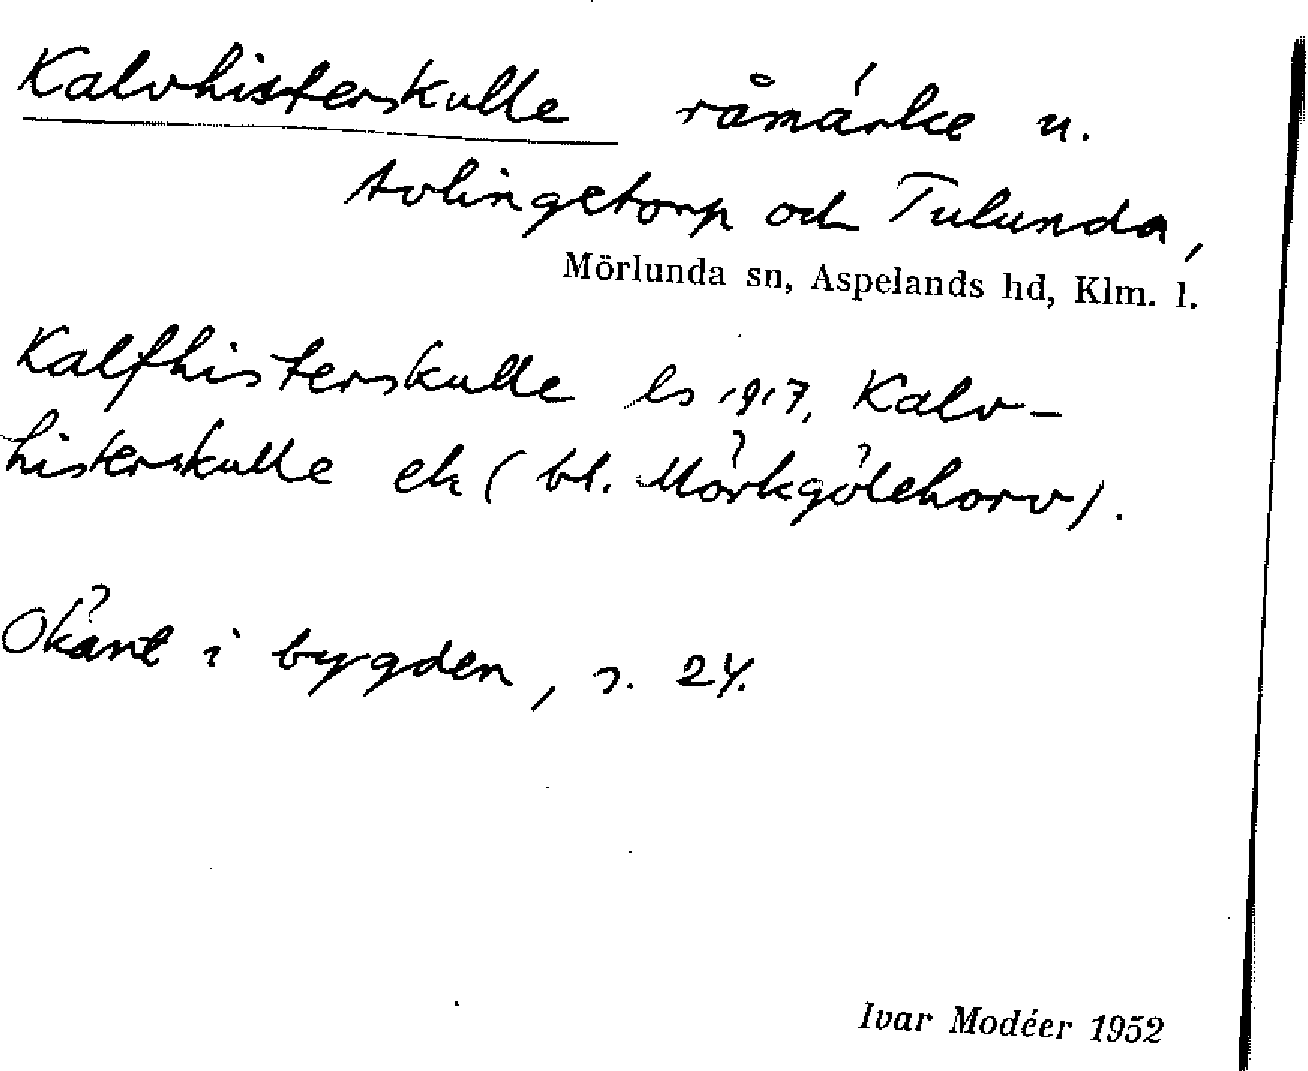 Kalvhisterskulle råmärke u.
Avlingetorp och Tulunda,
Mörlunda sn, Aspelands hd, Klm. l.
Kalfhisterskulle ls 1917, Kalv-
histerskulle ek (bl. Mörkgölehorv).
Okänt i bygden, s. 24.
Ivar Modéer 1952